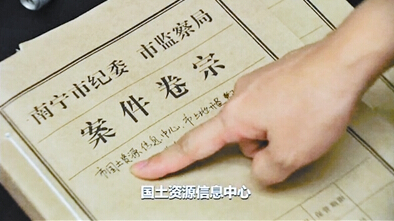 南宁市纪委 市监察局
案件卷宗
市国土资源信息中心、市土地
国土资源信息中心